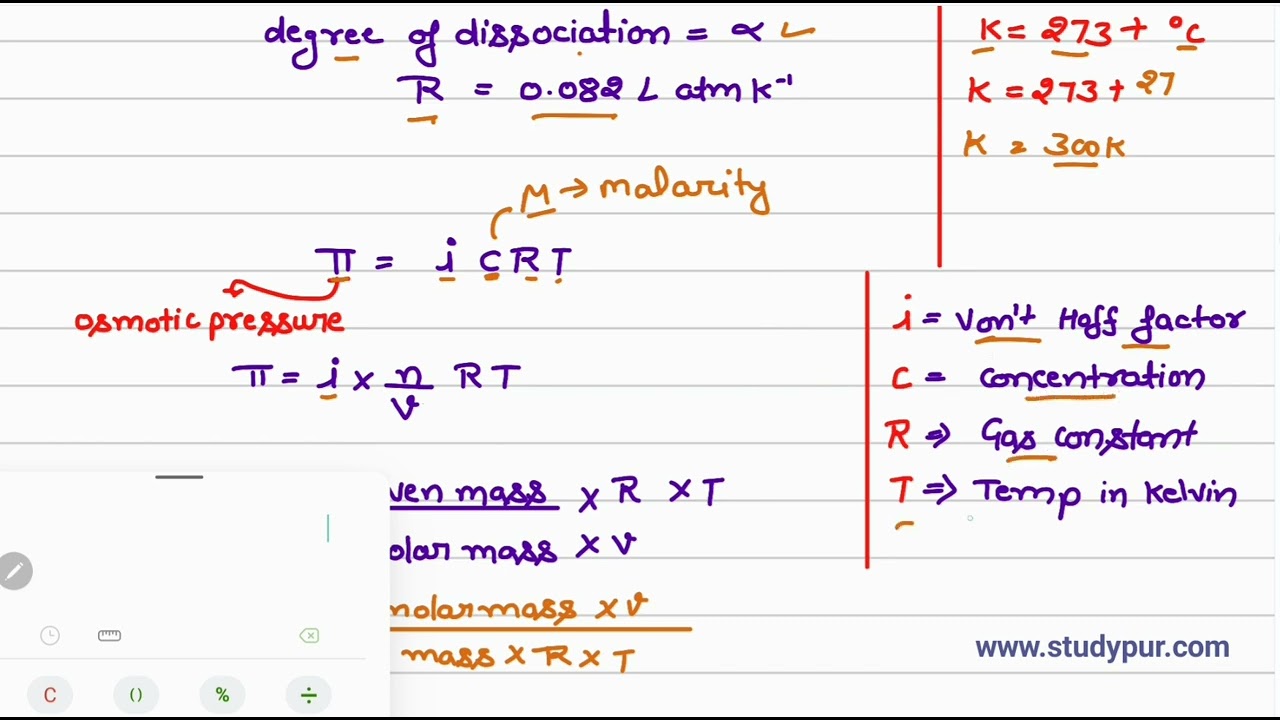 degree of dissociation = α
R = 0.082 L atm K⁻¹
M → malarity
π = i C R T
osmotic pressure
π = i × n/v R T
ven mass × R × T
olar mass × v
molar mass × v
mass × R × T
K = 273 + °C
K = 273 + 27
K = 300K
i = Von't Hoff factor
C = concentration
R ⇒ Gas constant
T ⇒ Temp in Kelvin
www.studypur.com
C () % ÷